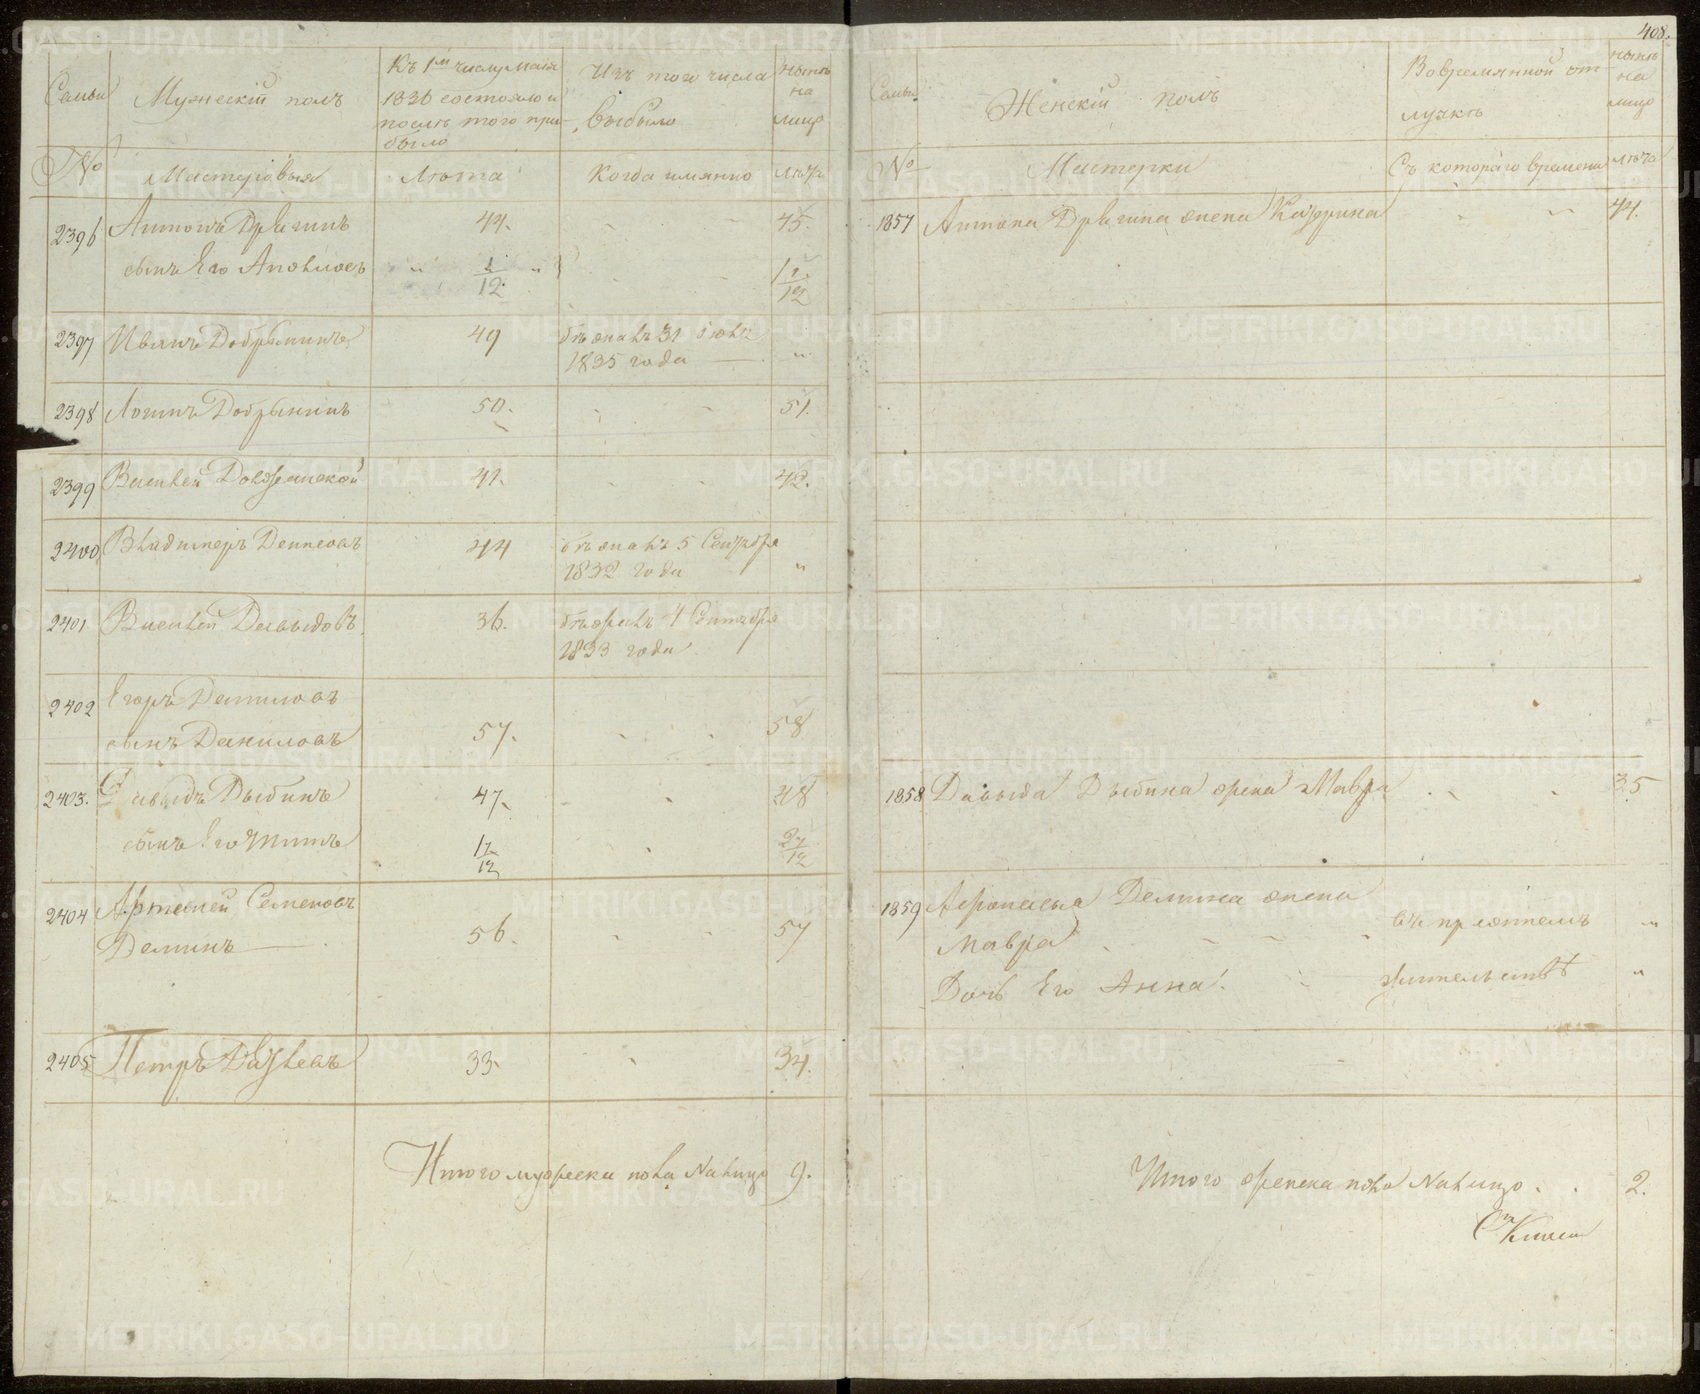 408.
Семьи
Мужескій полъ
Къ 1м числу Маія
1836 состояло и
послѣ того при-
было
Изъ того числа
выбыло
нынѣ
на
лицо
№
Мастеровыя
Лѣта
Когда имянно
лѣта
2396
Антонъ Дрягинъ
44.
45.
сынъ Его
1/12
1 1/12
2397
Иванъ Добрынинъ
49
бѣжалъ 31
1835 года
2398
Логинъ Добрынинъ
50.
51.
2399
Василей
41.
42.
2400
Владимеръ
44
бѣжалъ 5 Сентября
1832 года
2401
Василей Давыдовъ
36.
бѣжалъ 4 Сентября
1833 года
2402
Егоръ Даниловъ
сынъ Даниловъ
57.
58
2403.
Давыдъ Дыбинъ
47.
48
сынъ Его Титъ
1 1/12
2 1/12
2404
Артемей Семеновъ
Деминъ
56.
57
2405
Петръ
33.
34.
Итого мужеска пола Налицо 9.
Семьи
Женскій полъ
Вовремянной от
лучкѣ
нынѣ
на
лицо
№
Мастерки
Съ котораго времени
лѣта
1857
Антона Дрягина жена
44.
1858
Давыда Дыбина жена Мавра
35
1859
Демина жена
Мавра
въ
Дочь Его Анна
жительствѣ
Итого женска пола Налицо
2.
METRIKI.GASO-URAL.RU